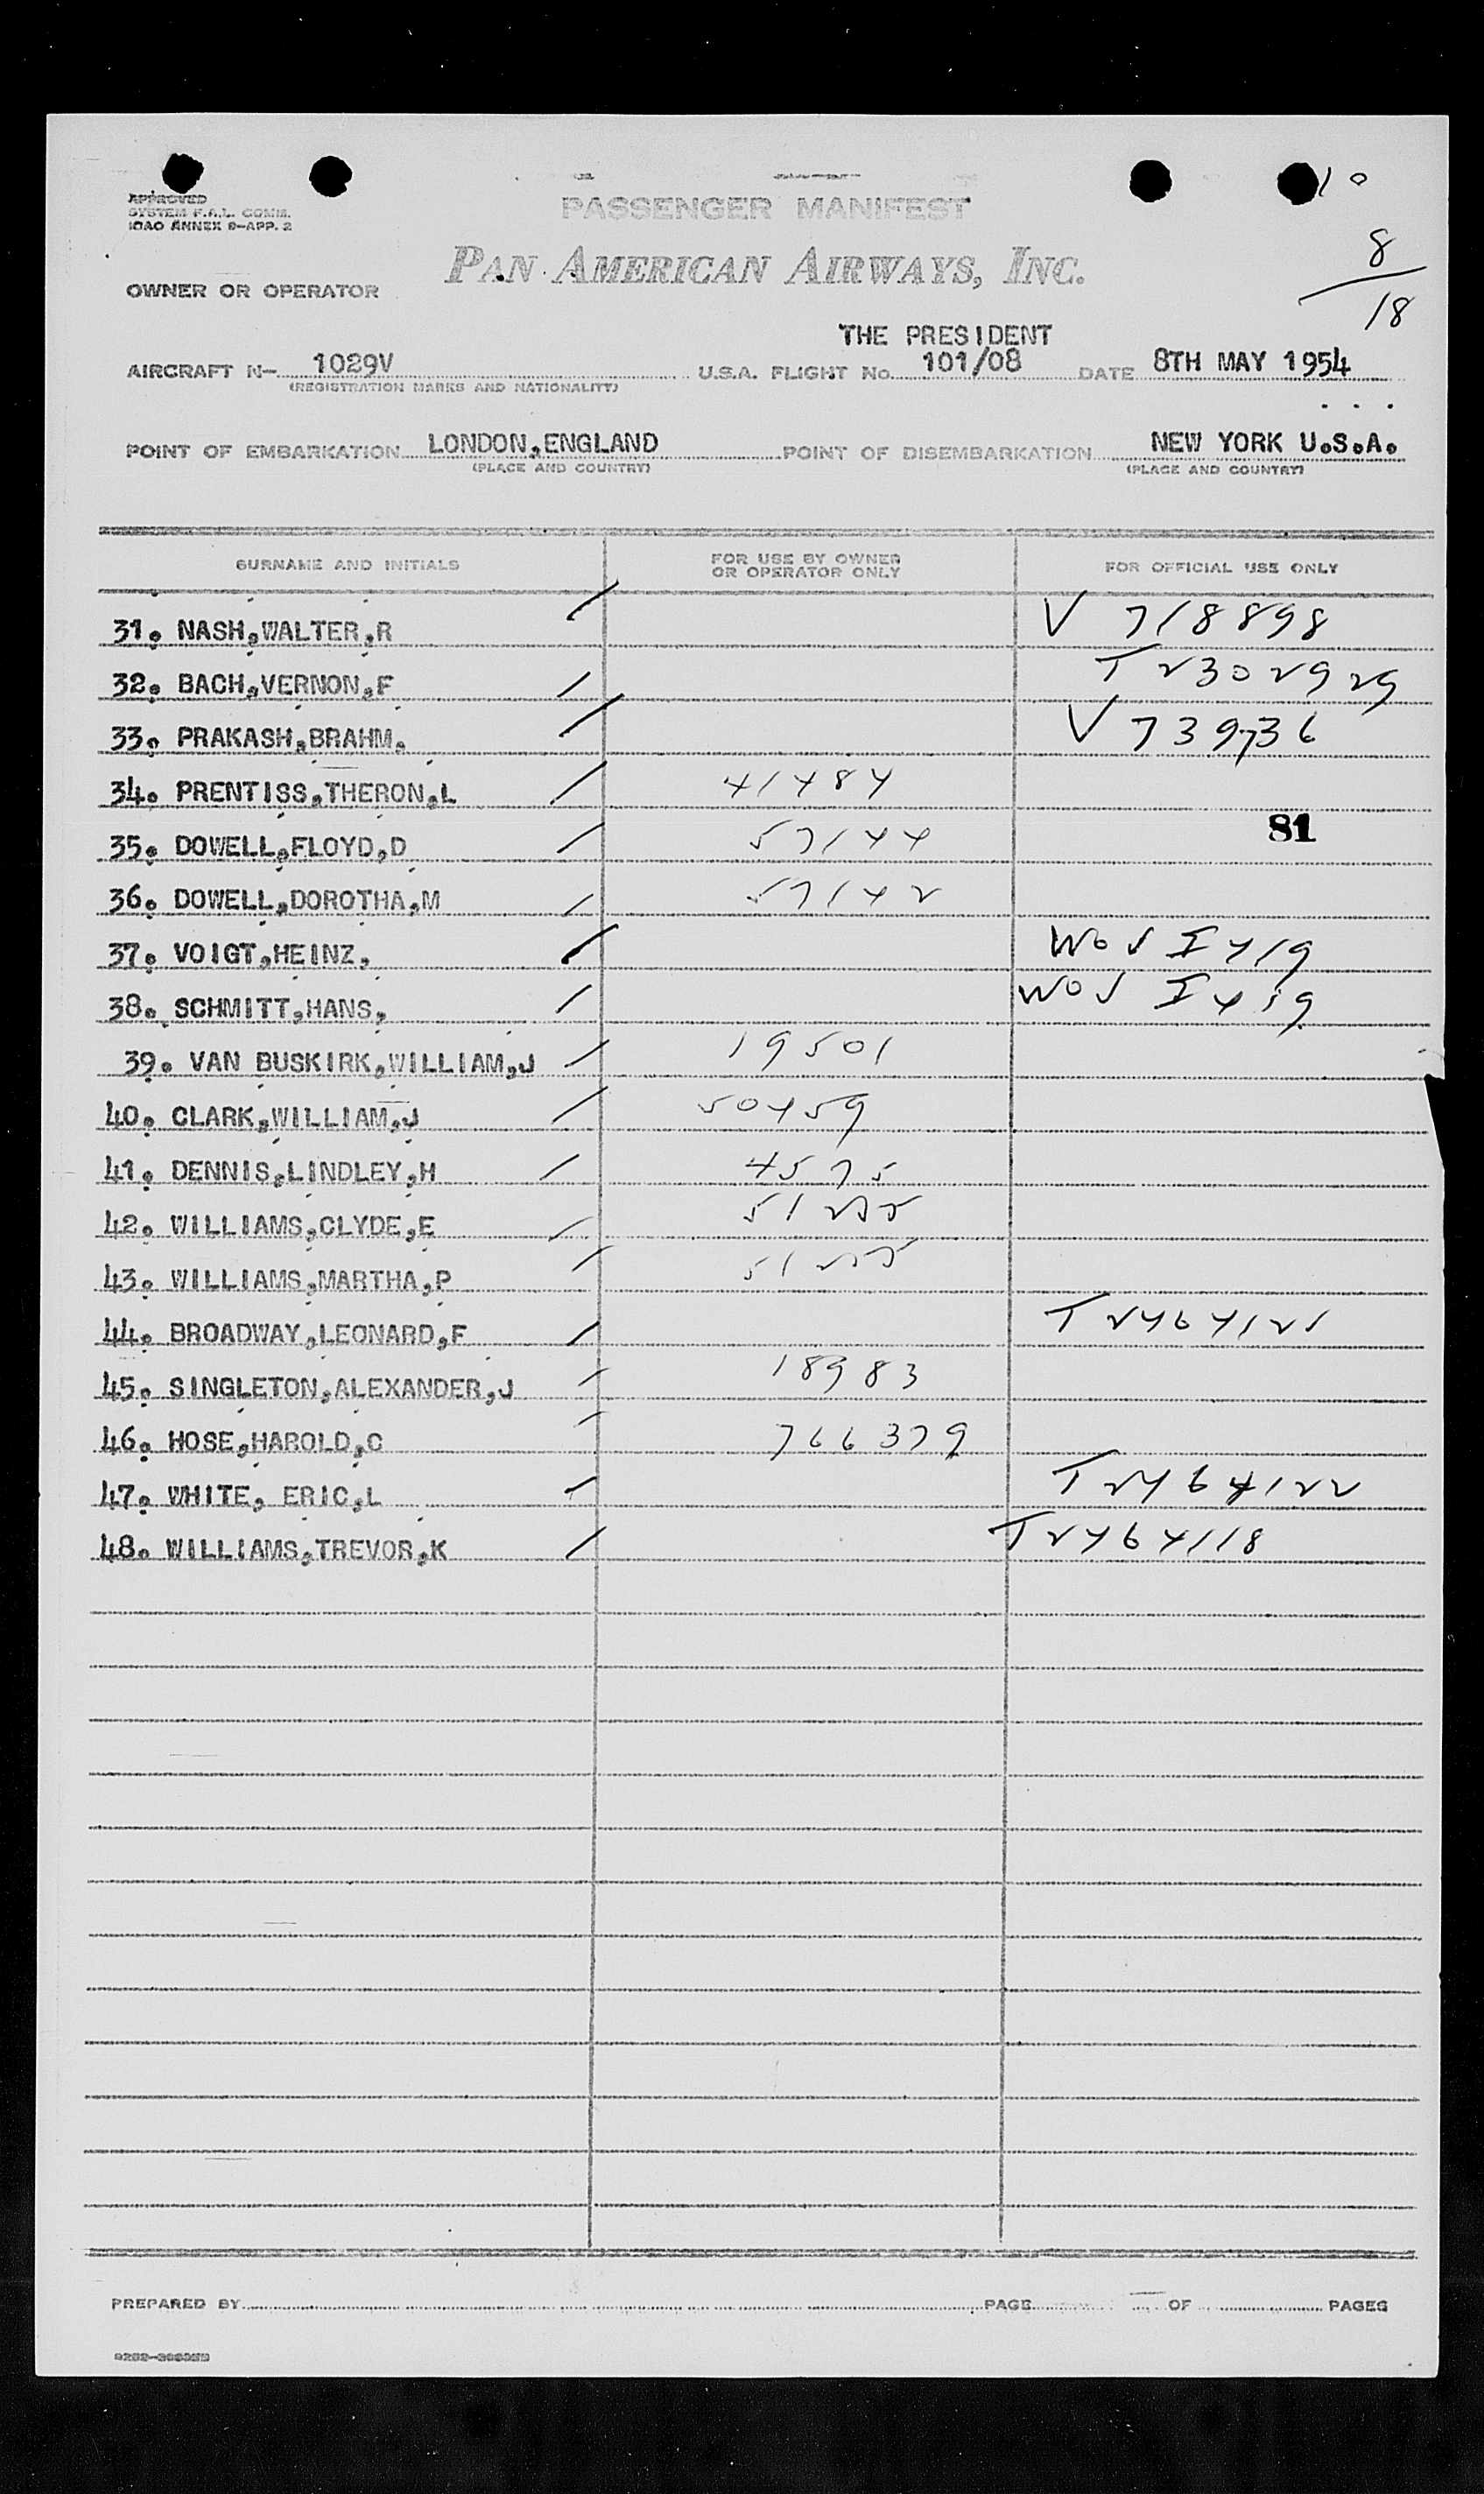 APPROVED
SYSTEM F.A.L. COMM.
ICAO ANNEX 9-APP. 2
PASSENGER MANIFEST
10
PAN AMERICAN AIRWAYS, INC.
8
18
OWNER OR OPERATOR
THE PRESIDENT
AIRCRAFT N- 1029V U.S.A. FLIGHT No. 101/08 DATE 8TH MAY 1954
(REGISTRATION MARKS AND NATIONALITY)
POINT OF EMBARKATION LONDON,ENGLAND POINT OF DISEMBARKATION NEW YORK U.S.A.
(PLACE AND COUNTRY) (PLACE AND COUNTRY)
SURNAME AND INITIALS FOR USE BY OWNER OR OPERATOR ONLY FOR OFFICIAL USE ONLY
31. NASH,WALTER,R / V 718898
32. BACH,VERNON,F / T2302929
33. PRAKASH,BRAHM. / V 739736
34. PRENTISS,THERON,L / 41484
81
35. DOWELL,FLOYD,D / 57144
36. DOWELL,DOROTHA,M / 57142
37. VOIGT,HEINZ, / I 419
38. SCHMITT,HANS, / I 419
39. VAN BUSKIRK,WILLIAM,J / 19501
40. CLARK,WILLIAM,J / 50459
41. DENNIS,LINDLEY,H / 4575
42. WILLIAMS,CLYDE,E /
43. WILLIAMS,MARTHA,P /
44. BROADWAY,LEONARD,F / T2464121
45. SINGLETON,ALEXANDER,J / 18983
46. HOSE,HAROLD,C / 766379
47. WHITE, ERIC,L / T2464122
48. WILLIAMS,TREVOR,K / T2464118
PREPARED BY PAGE OF PAGES